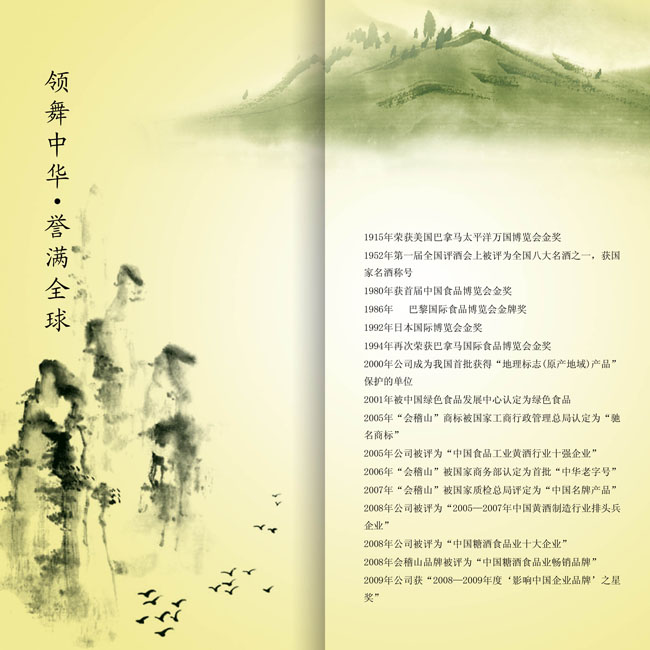 领舞中华·誉满全球
1915年荣获美国巴拿马太平洋万国博览会金奖
1952年第一届全国评酒会上被评为全国八大名酒之一，获国
家名酒称号
1980年获首届中国食品博览会金奖
1986年 巴黎国际食品博览会金牌奖
1992年日本国际博览会金奖
1994年再次荣获巴拿马国际食品博览会金奖
2000年公司成为我国首批获得“地理标志(原产地域)产品”
保护的单位
2001年被中国绿色食品发展中心认定为绿色食品
2005年“会稽山”商标被国家工商行政管理总局认定为“驰
名商标”
2005年公司被评为“中国食品工业黄酒行业十强企业”
2006年“会稽山”被国家商务部认定为首批“中华老字号”
2007年“会稽山”被国家质检总局评定为“中国名牌产品”
2008年公司被评为“2005—2007年中国黄酒制造行业排头兵
企业”
2008年公司被评为“中国糖酒食品业十大企业”
2008年会稽山品牌被评为“中国糖酒食品业畅销品牌”
2009年公司获“2008—2009年度‘影响中国企业品牌’之星
奖”